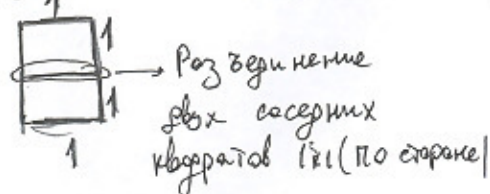 1
1
1
1
Разъединение
двух соседних
квадратов 1x1 (по стороне)